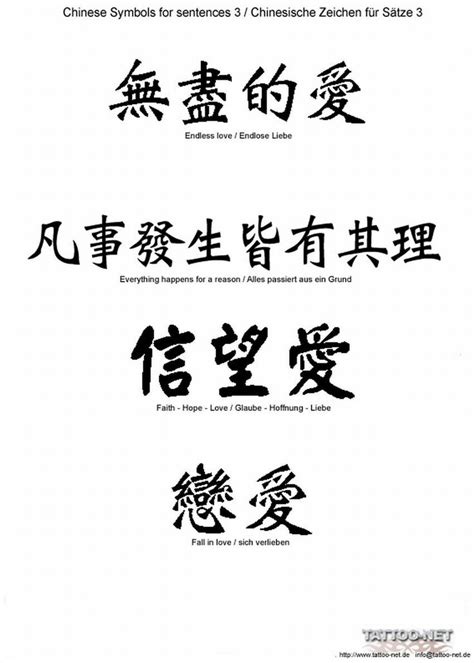 Chinese Symbols for sentences 3 / Chinesische Zeichen für Sätze 3
無盡的愛
Endless love / Endlose Liebe
凡事發生皆有其理
Everything happens for a reason / Alles passiert aus ein Grund
信望愛
Faith - Hope - Love / Glaube - Hoffnung - Liebe
戀愛
Fall in love / sich verlieben
TATTOO-NET
http://www.tattoo-net.de info@tattoo-net.de